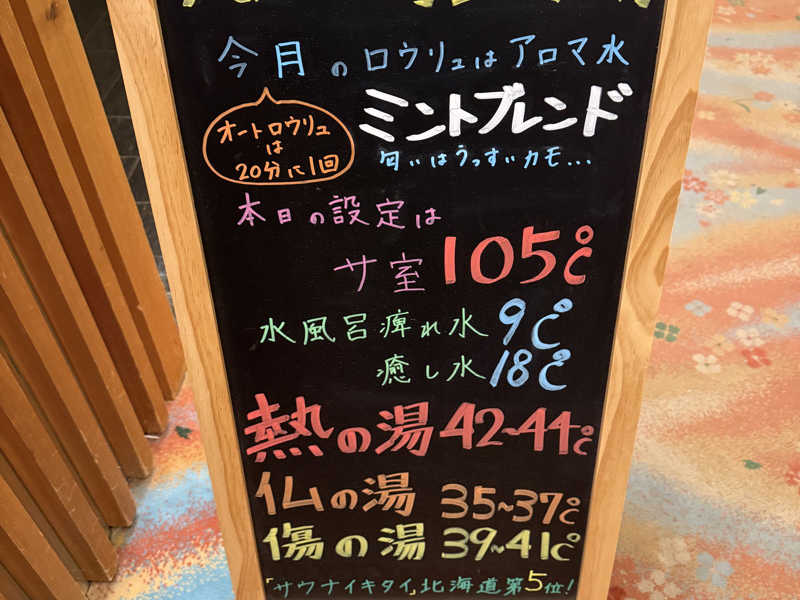 今月のロウリュはアロマ水
ミントブレンド
オートロウリュ
は
20分に1回
匂いはうっすいカモ...
本日の設定は
サ室 105℃
水風呂痺れ水 9℃
癒し水 18℃
熱の湯 42~44℃
仏の湯 35~37℃
傷の湯 39~41℃
「サウナイキタイ」北海道第5位!